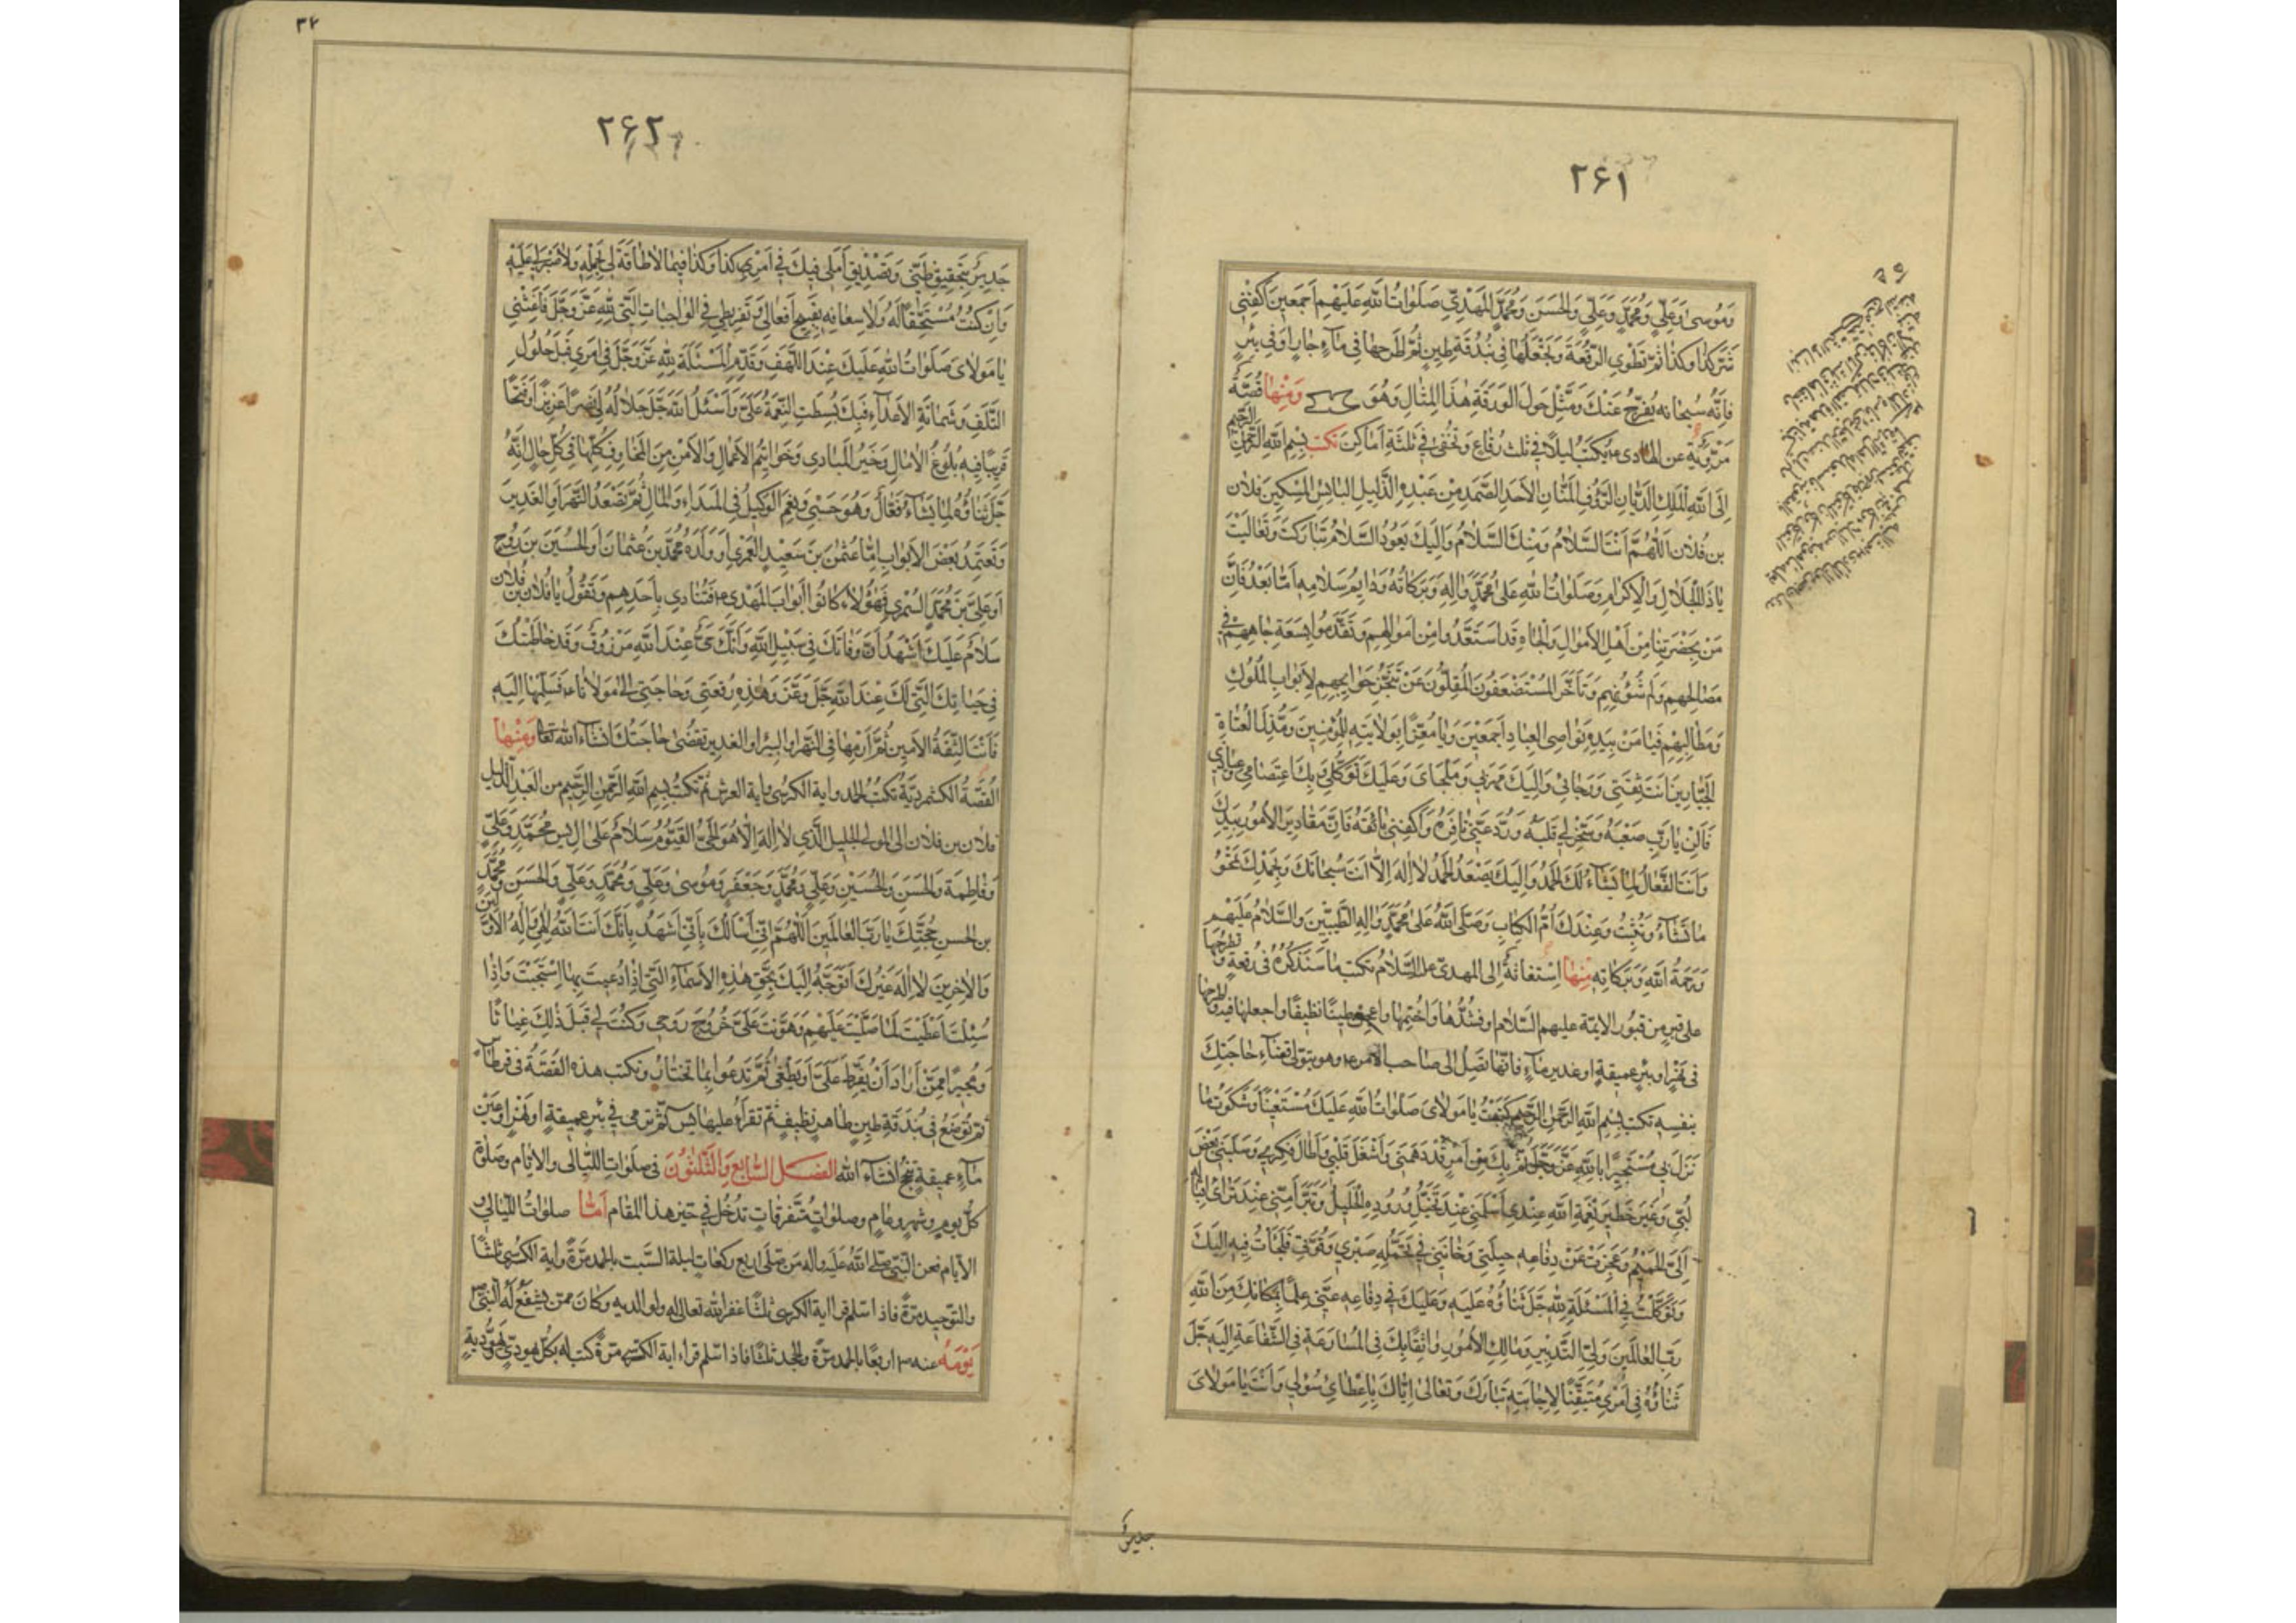 ۲۶۱
وَمُوسىٰ وَعَلِيٍّ وَمُحَمَّدٍ وَعَلِيٍّ وَالحَسَنِ وَمُحَمَّدٍ المَهْدِيِّ صَلَوٰاتُ اللهِ عَلَيْهِم اَجمَعِينَ اكْفِنِي
شَرَّ كَذٰا وكذا ثم تَطْوِي الرُّقْعَةَ وَتَجْعَلُهٰا فِي بُنْدُقَةِ طِينٍ ثُمَّ اطْرَحهٰا فِي مٰاءٍ جٰارٍ اَوْ فِي بِئْرٍ
فَاِنَّهُ سُبحٰانه يُفَرِّجُ عَنْكَ وَمَثِّلْ حَولَ الوَرَقَةِ هٰذَا المِثٰالِ وَهُوَ وَمِنْهٰا قِصَّةٌ
مَرْوِيَّة عن الهٰادى ع يُكتَبُ لَيلًا في ثلث رِقاعٍ وَتُخْفىٰ في ثَلٰثَةِ اَمٰاكِنَ تكتب بِسْمِ اللهِ الرَّحْمٰنِ الرَّحِيمِ
اِلَى اللهِ المَلِكِ الدَّيّٰانِ الرَّؤُفِ المَنّٰانِ الاَحَدِ الصَّمَدِ مِنْ عَبْدِهِ الذَّلِيلِ البٰائِسِ المِسْكِينِ فُلٰان
بن فُلٰان اَللّٰهُمَّ اَنْتَ السَّلٰامُ وَمِنْكَ السَّلٰامُ وَاِلَيكَ يَعُودُ السَّلٰامُ تَبٰارَكْتَ وَتَعٰالَيْتَ
يٰا ذَا الجَلٰالِ وَالاِكرٰامِ وَصَلَوٰاتُ اللهِ عَلىٰ مُحَمَّدٍ وَاٰلِهِ وَبَرَكٰاتُهُ وَدٰائِمُ سَلٰامِهِ اَمّٰا بَعْدُ فَاِنَّ
مَنْ بِحَضْرَتِنٰا مِنْ اَهْلِ الاَمْوٰالِ وَالجٰاهِ قَدِ اسْتَعَدُّوا مِنْ اَمْوٰالِهِم وَتَقَدَّمُوا بِسَعَةِ جٰاهِهِمْ فِي
مَصٰالِحِهِم وَلَمِّ شُؤُنِهِم وَتَأَخَّرَ المُسْتَضْعَفُونَ المُقِلُّونَ عَنْ تَنَجُّزِ حَوٰائِجِهِم لِاَبوٰابِ المُلُوكِ
وَمَطٰالِبِهِم فَيٰا مَنْ بِيَدِهِ نَوٰاصِي العِبٰادِ اَجمَعِينَ وَيٰا مُعِزًّا بِوَلٰايَتِهِ لِلمُؤمِنِينَ وَمُذِلَّ العُتٰاةِ
الجَبّٰارِينَ اَنتَ ثِقَتِي وَرَجٰائِي وَاِلَيكَ مَهرَبِي وَمَلجَاىَ وَعَلَيكَ تَوَكُّلِي وَبِكَ اعتِصٰامِي وَعِيٰاذِي
فَاَلِنْ يٰا رَبِّ صَعْبَهُ وَسَخِّرْ لِي قَلبَهُ وَرُدَّ عَنّي نٰافِرَهُ وَاكفِنِي بٰائِقَهُ فَاِنَّ مَقٰادِيرَ الاُمُورِ بِيَدِكَ
وَاَنْتَ الفَعّٰالُ لِمٰا تَشٰاءُ لَكَ الحَمْدُ وَاِلَيكَ يَصْعَدُ الحَمْدُ لٰا اِلٰهَ اِلّٰا اَنتَ سُبحٰانَكَ وَبِحَمْدِكَ تَمْحُو
مٰا تَشٰاءُ وَتُثْبِتُ وَعِنْدَكَ اُمُّ الكِتٰابِ وَصَلَّى اللهُ عَلىٰ مُحَمَّدٍ وَاٰلِهِ الطَّيِّبِينَ وَالسَّلٰامُ عَلَيْهِم
وَرَحمَةُ اللهِ وَبَرَكٰاته مِنهٰا اِسْتِغاثةٌ اِلى المهدىّ السَّلٰامُ تكتب مٰا سَنَذكُرُهُ فى رُقعةٍ وتطرحها
على قبرٍ من قبُور الائمّة عليهم السّلام او فشُدّها وَاختِمْها واعجن طينًا نظيفًا واجعلها فيه واطرحها
فى نَهْرٍ او بئرٍ عميقةٍ او غدير مٰاءٍ فانّها تَصِلُ الى صٰاحب الامر ع وهو يتولّى قضاء حاجَتِكَ
بنفسه تكتب بِسْمِ اللهِ الرَّحمٰنِ الرَّحِيمِ كَتَبْتُ يٰا مَولٰاىَ صَلَوٰاتُ اللهِ عَلَيكَ مُسْتَغِيثًا وَشَكَوْتُ مٰا
نَزَلَ بِي مُسْتَجِيرًا بِاللهِ عَزَّ وَجَلَّ ثُمَّ بِكَ مِنْ اَمْرٍ قَدْ دَهَمَنِي وَاَشْغَلَ قَلْبِي وَاَطٰالَ فِكرِي وَسَلَبَنِي بَعْضَ
لُبِّي وَغَيَّرَ خَطِيرَ نِعْمَةِ اللهِ عِنْدِي اَسْلَمَنِي عِنْدَ تَخَيُّلِ وُرُودِهِ الخَلِيلُ وَتَبَرَّأَ مِنّي عِنْدَ تَرٰائِي اِقْبٰالِهِ
اِلَيَّ الحَمِيمُ وَعَجِزَتْ عَنْ دِفٰاعِهِ حِيلَتِي وَخٰانَنِي فِي تَحَمُّلِهِ صَبْرِي وَقُوَّتِي فَلَجَأتُ فِيهِ اِلَيكَ
وَتَوَكَّلْتُ فِي المَسْئَلَةِ لِلّٰهِ جَلَّ ثَنٰاؤُهُ عَلَيهِ وَعَلَيكَ فِي دِفٰاعِهِ عَنّي عِلمًا بِمَكٰانِكَ مِنَ اللهِ
رَبِّ العٰالَمِينَ وَلِيِّ التَّدْبِيرِ وَمٰالِكِ الاُمُورِ وٰاثِقًا بِكَ فِى المُسٰارَعَةِ فِى الشَّفٰاعَةِ اِلَيهِ جَلَّ
ثَنٰاؤُهُ فِى اَمْرِي مُتَيَقِّنًا لِاِجٰابَتِهِ تَبٰارَكَ وَتَعٰالىٰ اِيّٰاكَ بِاِعْطٰائِي سُؤلِي وَاَنْتَ يٰا مَولٰاىَ
جديرٌ
۲۶۲
جَدِيرٌ بِتَحقِيقِ ظَنّي وَتَصْدِيقِ اَمَلِي فِيكَ فِي اَمْرِي كَذٰا وَكَذٰا فِيمٰا لٰا طٰاقَةَ لِي بِحَملِهِ وَلٰا صَبْرَ لِي عَلَيْهِ
وَاِنْ كُنْتُ مُسْتَحِقًّا لَهُ وَلِاَضعٰافِهِ بِقَبِيحِ اَفعٰالِي وَتَفرِيطِي فِي الوٰاجِبٰاتِ الَّتِي لِلّٰهِ عَزَّ وَجَلَّ فَاَغِثْنِي
يٰا مَولٰاىَ صَلَوٰاتُ اللهِ عَلَيكَ عِنْدَ اللَّهَفِ وَقَدِّمِ المَسْئَلَةَ لِلّٰهِ عَزَّ وَجَلَّ فِي اَمرِي قَبلَ حُلُولِ
التَّلَفِ وَشَمٰاتَةِ الاَعدٰاءِ فَبِكَ بُسِطَتِ النِّعْمَةُ عَلَيَّ وَاَسْئَلُ اللهَ جَلَّ جَلٰالُهُ لِي نَصْرًا عَزِيزًا وَفَتحًا
قَرِيبًا فِيهِ بُلُوغُ الاٰمٰالِ وَخَيرُ المَبٰادِي وَخَوٰاتِيمُ الاَعمٰالِ وَالاَمْنُ مِنَ المَخٰاوِفِ كُلِّهٰا فِي كُلِّ حٰالٍ اِنَّهُ
جَلَّ ثَنٰاؤُهُ لِمٰا يَشٰاءُ فَعّٰالٌ وَهُوَ حَسْبِي وَنِعمَ الوَكِيلُ فِي المَبدَاءِ وَالمٰاٰلِ ثُمَّ تَصْعَدُ النَّهْرَ اَوِ الغَدِيرَ
وَتَعتَمِدُ بَعْضَ الاَبوٰابِ اِمّٰا عُثْمٰنَ بنَ سَعِيدٍ العَمْرِي اَو وَلَدَهُ مُحَمَّدَ بنَ عُثمٰانَ اَوِ الحُسَيْنَ بن رَوحٍ
اَو عَلِيَّ بْنَ مُحَمَّدٍ السَّمُرِي فَهٰؤُلٰاءِ كٰانُوا اَبوٰابَ المَهْدِي ع فَتُنٰادِي بِاَحَدِهِم وَتَقُولُ يٰا فُلٰانَ بنَ فُلٰان
سَلٰامٌ عَلَيكَ اَشْهَدُ اَنَّ وَفٰاتَكَ فِي سَبِيلِ اللهِ وَاَنَّكَ حَيٌّ عِنْدَ اللهِ مَرْزُوقٌ وَقَد خٰاطَبْتُكَ
فِي حَيٰاتِكَ الَّتِي لَكَ عِنْدَ اللهِ جَلَّ وَعَزَّ وَهٰذِهِ رُقعَتِي وَحٰاجَتِي اِلىٰ مَولٰانٰا ع فَسَلِّمْهٰا اِلَيهِ
فَاَنْتَ الثِّقَةُ الاَمِينُ ثُمَّ ارْمِهٰا فِي النَّهر او البِئر او الغدير تقضىٰ حٰاجَتُكَ انشٰاء الله تعا وَمِنْهٰا
القِصَّةُ الكشمردِيّة تكتبُ الحمد واية الكرسى واية العرش ثُمّ تكتُبُ بِسْمِ اللهِ الرَّحْمٰنِ الرَّحِيمِ مِن العَبْدِ الذَّلِيل
فلان بن فلان الى المولى الجليل الَّذِي لٰا اِلٰهَ اِلّٰا هُوَ الحَيُّ القَيُّومُ سَلٰامٌ عَلىٰ اٰلِ يٰس مُحَمَّدٍ وَعَلِيٍّ
وَفٰاطِمَةَ وَالحَسَنِ وَالحُسَيْنِ وَعَلِيٍّ وَمُحَمَّدٍ وَجَعْفَرٍ وَمُوسىٰ وَعَلِيٍّ وَمُحَمَّدٍ وَعَلِيٍّ وَالحَسَنِ وَمُحَمَّدِ
بن الحسن حُجَّتِكَ يٰا رَبَّ العٰالَمِينَ اَللّٰهُمَّ اِنّي اَسْأَلُكَ بِاَنّي اَشْهَدُ بِاَنَّكَ اَنْتَ اللهُ اِلٰهِي وَاِلٰهُ الاَوَّلِينَ
وَالاٰخِرِينَ لٰا اِلٰهَ غَيْرُكَ اَتَوَجَّهُ اِلَيكَ بِحَقِّ هٰذِهِ الاَسمٰاءِ الَّتي اِذٰا دُعِيتَ بِهٰا اسْتَجَبْتَ وَاِذٰا
سُئِلْتَ اَعْطَيْتَ لَمّٰا صَلَّيْتَ عَلَيْهِم وَهَوَّنْتَ عَلَيَّ خُرُوجَ رُوحِي وَكُنْتَ لِي قَبلَ ذٰلِكَ غِيٰاثًا
وَمُجِيرًا مِمَّنْ اَرٰادَ اَنْ يَفْرُطَ عَلَيَّ اَو يَطْغىٰ ثُمَّ تَدعُوا بِمٰا تختٰارُ وتكتب هذه القِصّةُ فى قرطٰاس
ثم تُوضَعُ فى بُندُقَةِ طِينٍ طاهرٍ نظيفٍ ثم تقرأُ عليها يٰس ثُمّ ترمى في بئرٍ عميقةٍ او نَهْرٍ او عَيْنِ
مٰاءٍ عميقةٍ تنجح انشاء الله الفصل السّابع وَالثَّلٰثُونَ فى صلوات اللّيٰالى والايّام وصلٰوة
كلّ يومٍ وشهرٍ وعٰامٍ وصلوٰاتٍ متفرّقاتٍ تدخُلُ فى حيّز هذا المقام اَمّٰا صلوٰاتُ اللّيٰالى و
الايّام فعن النّبىّ صلّى اللهُ عليه واله من صلّى اربع ركعاتٍ ليلة السّبت بالحمد مَرّةً واية الكرسى ثلٰثًا
والتّوحيد مرّةً فاذا سلّم قرا اية الكرسى ثلٰثًا غفر الله تعالى له ولوالديه وكان ممّن يشفعُ لَهُ النّبىّ ص
يَوْمَهُ عنه ص اربعًا بالحمد مرّةً والجحد ثلٰثًا فاذا سلّم قراء اية الكرسى مرّةً كتب له بكُلّ يهودىٍّ ويَهُوديّةٍ